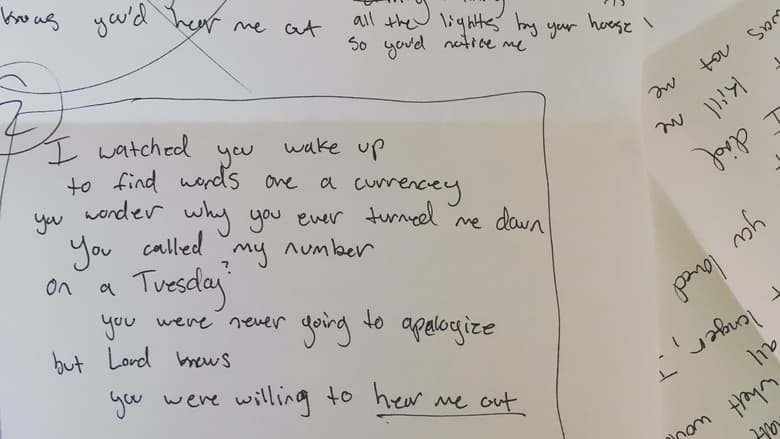 knows you'd hear me out
all the lights by your house
so you'd notice me
2
I watched you wake up
to find words are a currencey
you wonder why you ever turned me down
You called my number
on a Tuesday?
you were never going to apologize
but Lord knows
you were willing to hear me out
was not me
I kill me
did
you
loved
longer, I
all
what